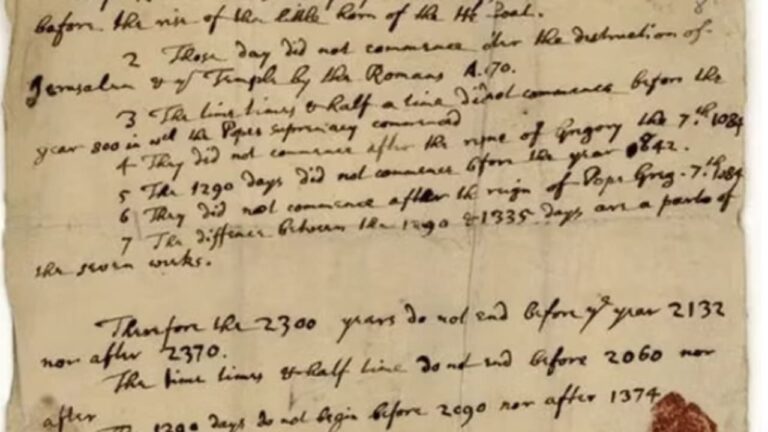 before the rise of the little horn of the He Goat.
2 Those day did not commence after the destruction of
Jerusalem & ye Temple by the Romans A. 70.
3 The time times & half a time did not commence before the
year 800 in wch the Popes supremacy commenced
4 They did not commence after the reigne of Gregory the 7.th 1084
5 The 1290 days did not commence before the year 842.
6 They did not commence after the reign of Pope Greg. 7.th 1084
7 The diffence between the 1290 & 1335 days are a parts of
the seven weeks.
Therefore the 2300 years do not end before ye year 2132
nor after 2370.
The time times & half time do not end before 2060 nor
after
The 1290 days do not begin before 2090 nor after 1374